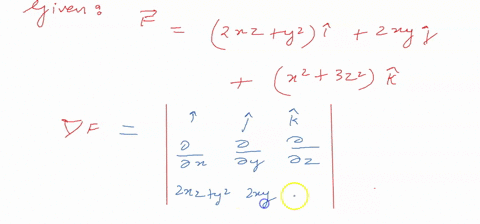 Given: F⃗ = (2xz + y²) î + 2xy ĵ
+ (x² + 3z²) k̂
∇F = | î ĵ k̂
∂/∂x ∂/∂y ∂/∂z
2xz + y² 2xy |